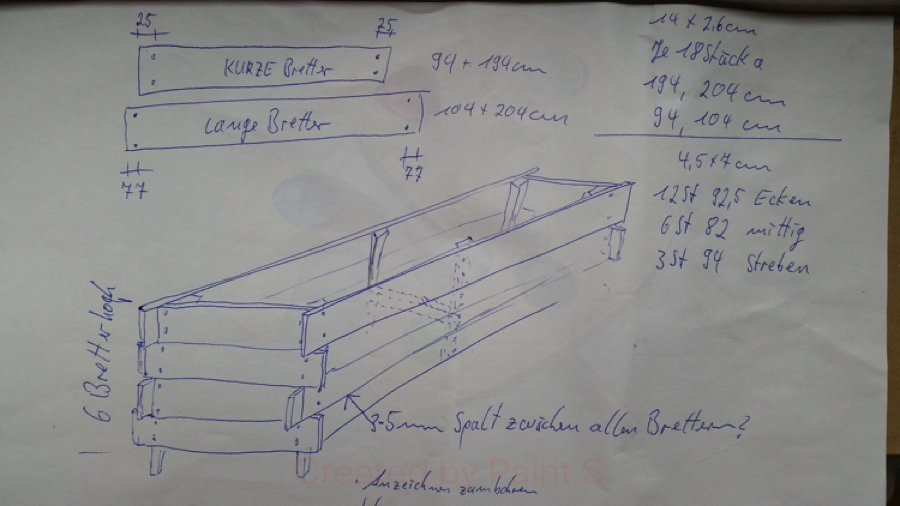 25 25
KURZE Bretter
94 + 194cm
Lange Bretter
104 + 204cm
77 77
14 x 2,6cm
Je 18 Stück a
194, 204 cm
94, 104 cm
4,5x7cm
12St 92,5 Ecken
6St 82 mittig
3St 94 Streben
6 Bretter hoch
3-5mm Spalt zwischen allen Brettern?
Created by Paint S
Anzeichnen zum bohren